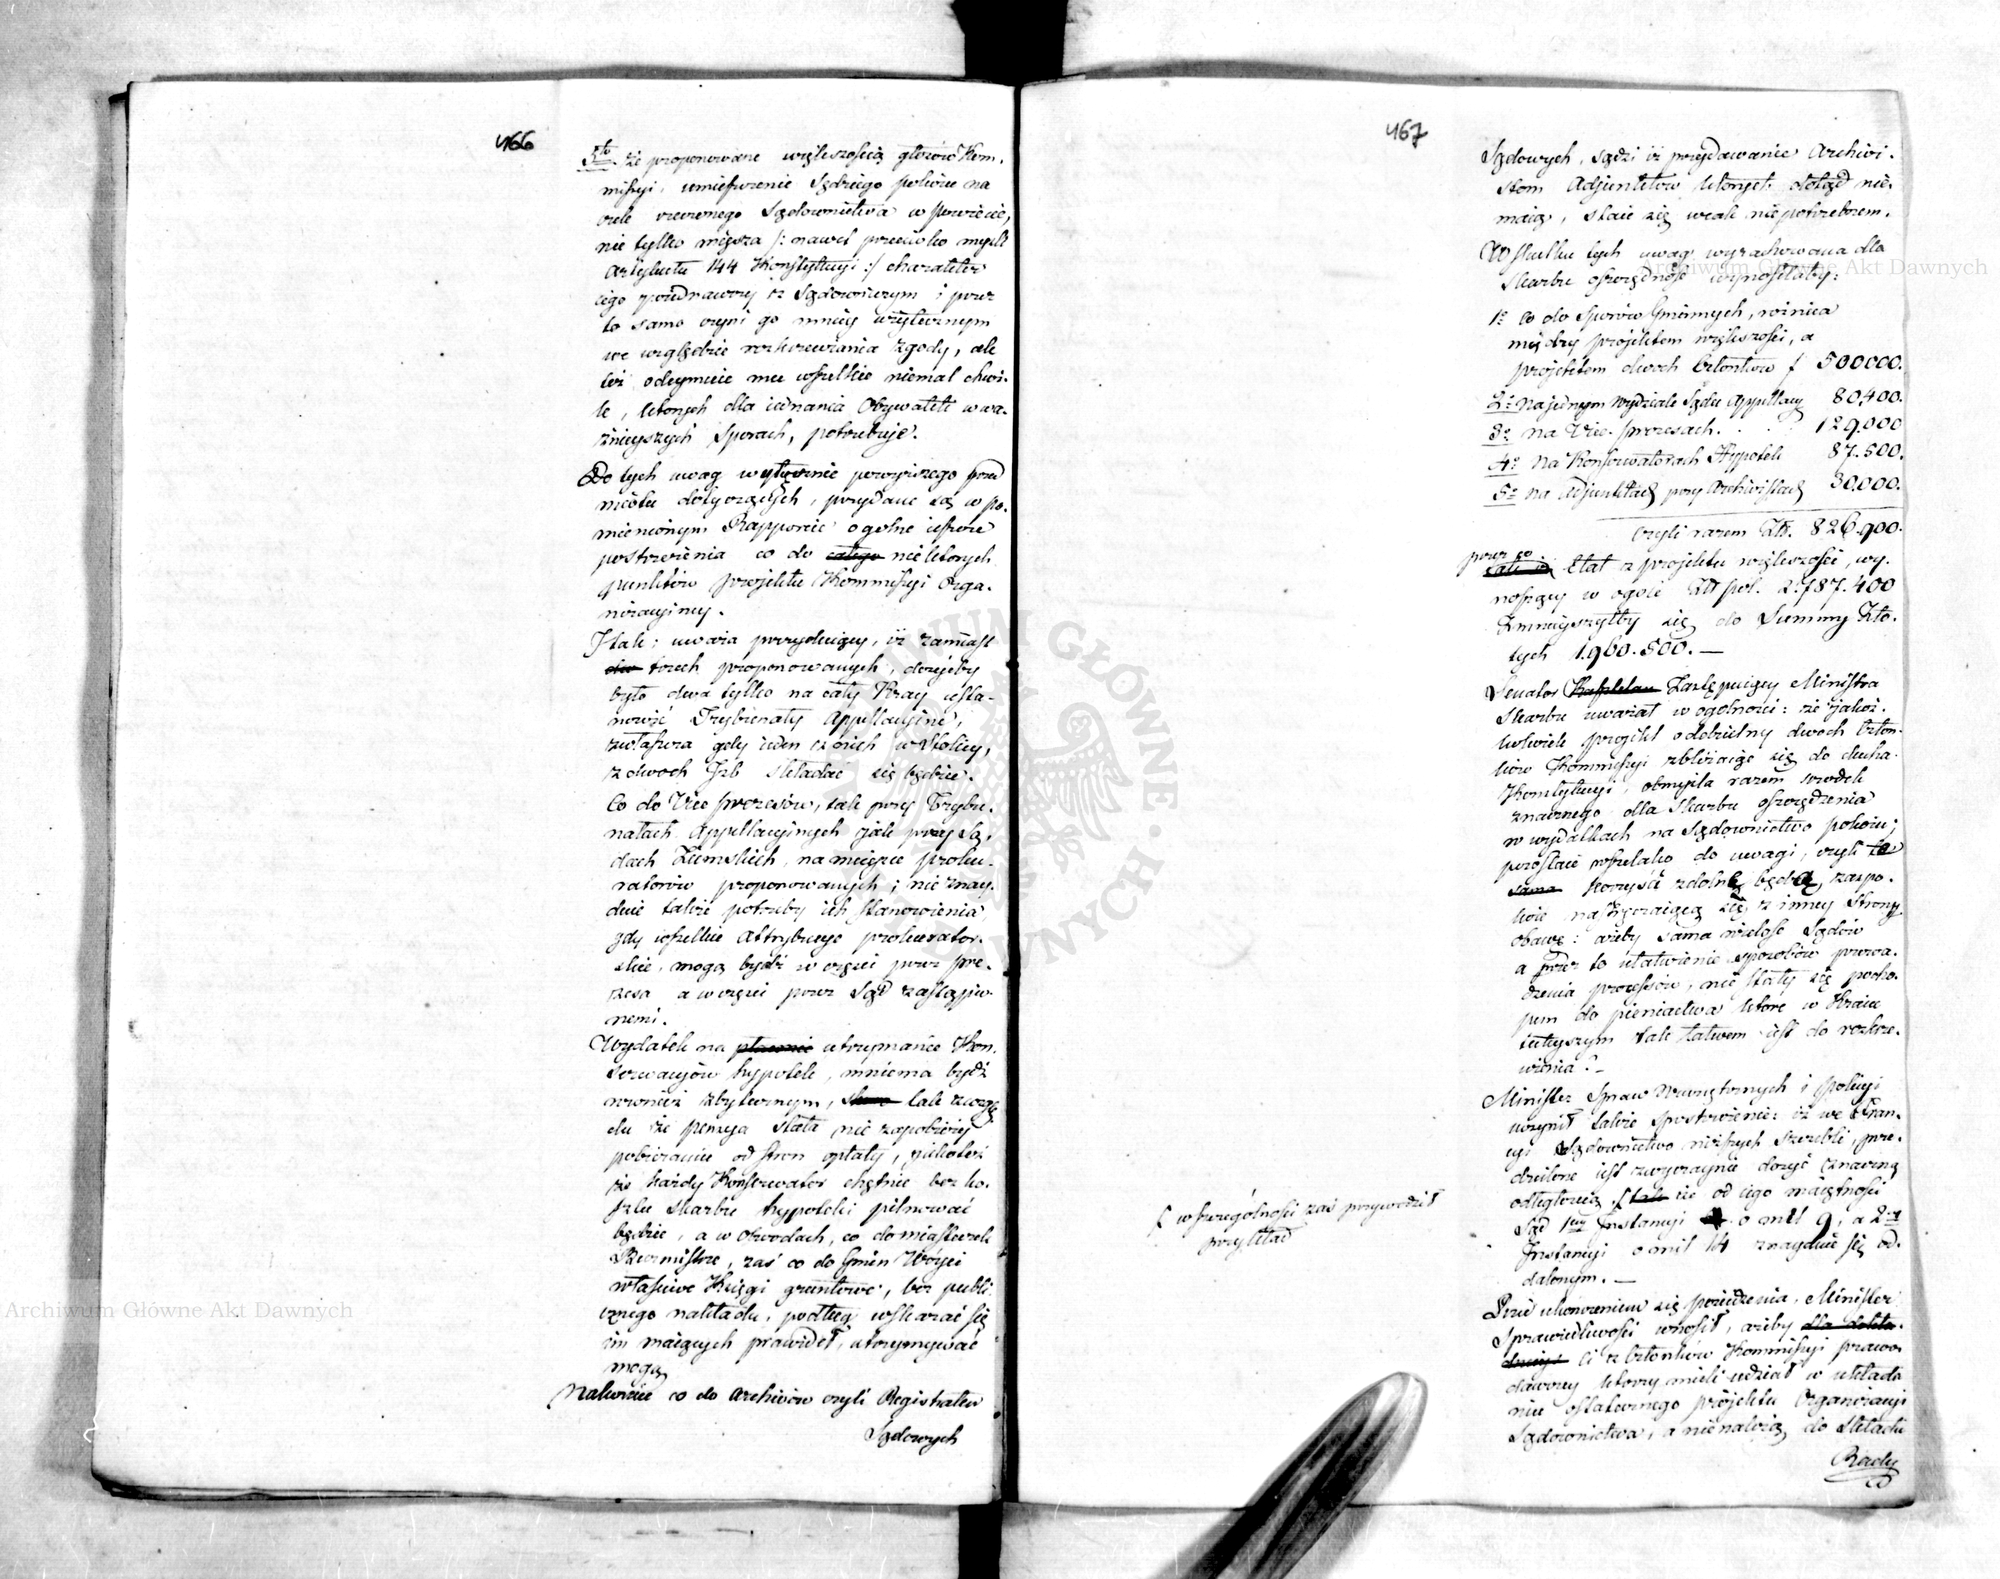 466
5to że proponowane większością głosów Kom.
missyi, umieszczenie Sędziego pokoiu na
czele rzeczonego Sądownictwa w powiecie,
nie tylko miesza /: nawet przeciwko myśli
Artykułu 144 Konstytucyi :/ charakter
iego poiednawczy z Sądowniczym i przez
to samo czyni go mniey użytecznym
we względzie rozkrzewiania zgody, ale
też odeymuie mu wszelkie niemal chwi-
le, których dla iednania Obywateli w wa-
żnieyszych sporach, potrzebuie.
Do tych uwag wyłącznie powyższego przed
miotu dotyczących, przydane są w po.
mienionym Rapporcie ogólne ieszcze
postrzeżenia co do całego niektórych
punktów projektu Kommissyi Orga.
nizacyiney.
I tak: uważa przyłączny, iż zamiast
dw trzech proponowanych, dosyćby
było dwa tylko na cały Kray usta-
nowić Trybunały Appellacyine,
zwłaszcza gdy ieden z nich w Stolicy,
z dwoch Izb składać się będzie.
Co do Vice prezesów, tak przy Trybu.
nałach Appellacyinych jak przy Są.
dach Ziemskich, na mieysce proku-
ratorów proponowanych; nie znay.
duie także potrzeby ich stanowienia,
gdy wszelkie Attrybucye prokurator.
skie, mogą bydź w części przez pre.
zesa a w części przez Sąd zastąpio-
nemi.
Wydatek na płacenie utrzymanie Kon.
serwacyów hypotek, mniema bydź
również zbytecznym, tak z wzglę
du że pensya stała nie zapobieży
pobieraniu od stron opłaty, jakoteż
że każdy Konserwator chętnie bez ko.
sztu skarbu hypoteki pilnować
będzie, a w obwodach, co do miasteczek
Burmistrze, zaś co do Gmin Wóyci
właściwe Księgi gruntowe, bez publi
cznego nakładu, podług wskazać się
im maiących prawideł, utrzymywać
mogą
Nakoniec co do Archiwów czyli Registratur
Sądowych
467
Sądowych, sądzi iż przydawanie Archiwi.
stom Adjunktów których dotąd nie.
maią, staie się wcale niepotrzebnem.
W skutku tych uwag wyrachowana dla
Skarbu oszczędność wynosiłaby:
1o Co do Sporów Gminnych, różnica
między projektem większości, a
projektem dwoch Członków f 500000.
2o Na jednym Wydziale Sądu Appellacy 80,400.
3o na Vice-prezesach . . . 129.000
4o Na Konserwatorach Hypotek 87.500.
5o na Adjunktach przy Archiwistach 30.000.
czyli razem Zł. 826.900.
przez co
tak iż Etat z projektu większości, wy.
noszący w ogóle Zł pol. 2.787.400
zmnieyszyłby się do Summy Zło.
tych 1.960.500. —
Senator Kasztelan Zastępuiący Ministra
Skarbu uważał w ogólności: że jakoż.
kolwiek projekt oddzielny dwoch Człon-
ków Kommissyi zbliżaiąc się do ducha
Konstytucyi, obmyśla razem srodek
znacznego dla Skarbu oszczędzenia
w wydatkach na Sądownictwo pokoiu;
pozostaie wszelako do uwagi, czyli ta
sama korzyść zdolną będzie, zaspo.
koić nastręczaiącą się z inney strony
obawę: ażeby sama mnogość Sądów
a przez to ułatwienie sposobów prowa.
dzenia procesów, nie stały się powo.
dem do pieniactwa które w Kraiu
tuteyszym tak łatwem iest do rozkrze.
wienia? —
Minister Spraw Wewnętrznych i Policyi
uczynił także spostrzeżenie: iż we Fran.
cyi Sądownictwo niższych szczebli, prze.
dzielone iest zwyczaynie dosyć znaczną
odległością, f tak że od iego maiętności
Sąd 1ey Instancyi o mil 9, a 2iey
Instancyi o mil 14 znayduie się od.
dalonym. —
f w szczególności zaś przywodził
przykład
Przed ukończeniem się posiedzenia, Minister
Sprawiedliwości wnosił, ażeby dla dokła.
dniey ci z Członków Kommissyi prawo
dawczey którzy mieli udział w układa
niu ostatecznego projektu Organizacyi
Sądownictwa, a nie należą do składu
Rady
Archiwum Główne Akt Dawnych
Archiwum Główne Akt Dawnych